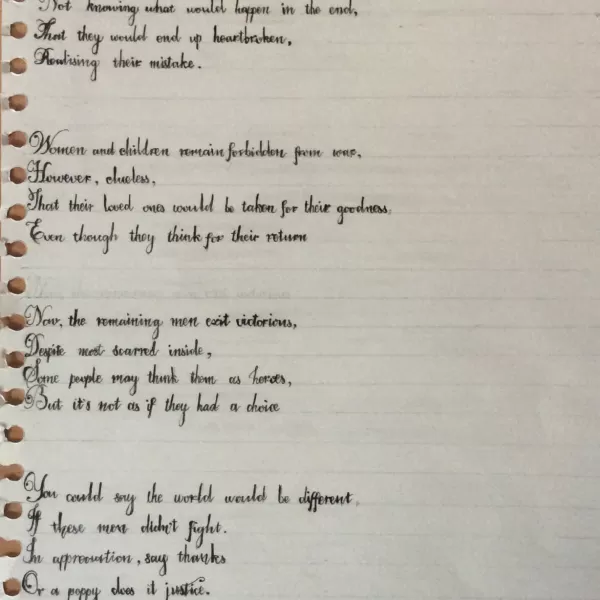 Not knowing what would happen in the end,
That they would end up heartbroken,
Realising their mistake.
Women and children remain forbidden from war,
However, clueless,
That their loved ones would be taken for their goodness,
Even though they think for their return
Now, the remaining men exit victorious,
Despite most scarred inside,
Some people may think them as heroes,
But it's not as if they had a choice
You could say the world would be different,
If these men didn't fight.
In appreciation, say thanks
Or a poppy does it justice.